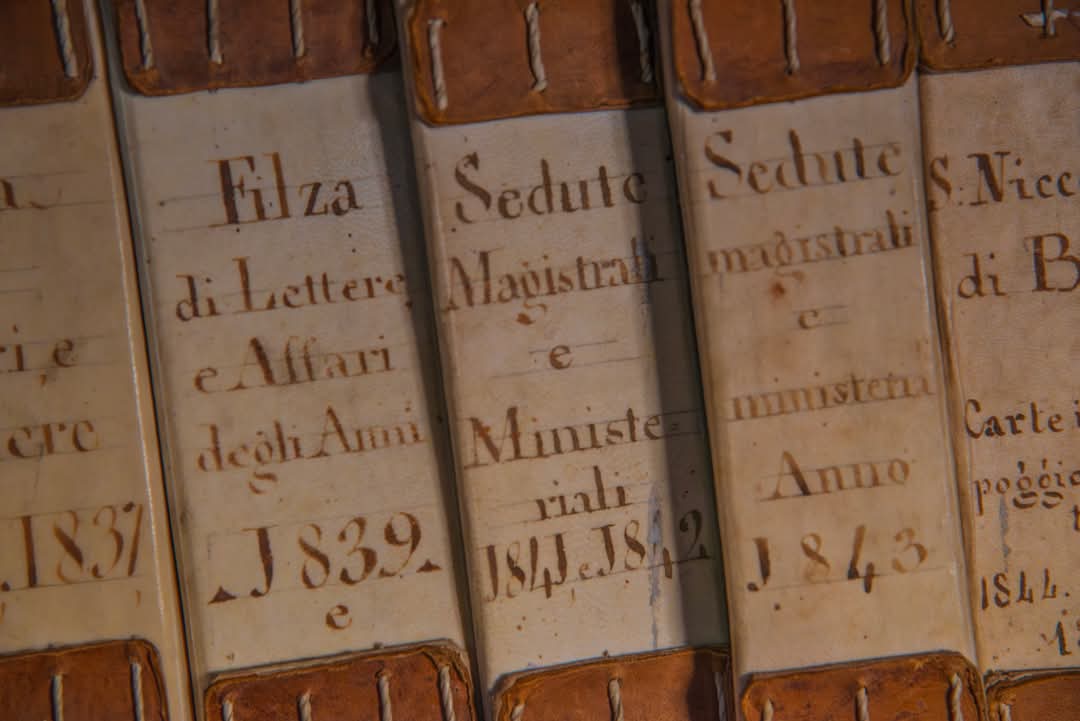 1837
Filza
di Lettere
e Affari
degli Anni
1839.
e
Sedute
Magistrali
e
Ministe=
riali
1841 e 1842
Sedute
magistrali
e
ministeria
Anno
1843
S. Nicc
di B
Carte
1844.